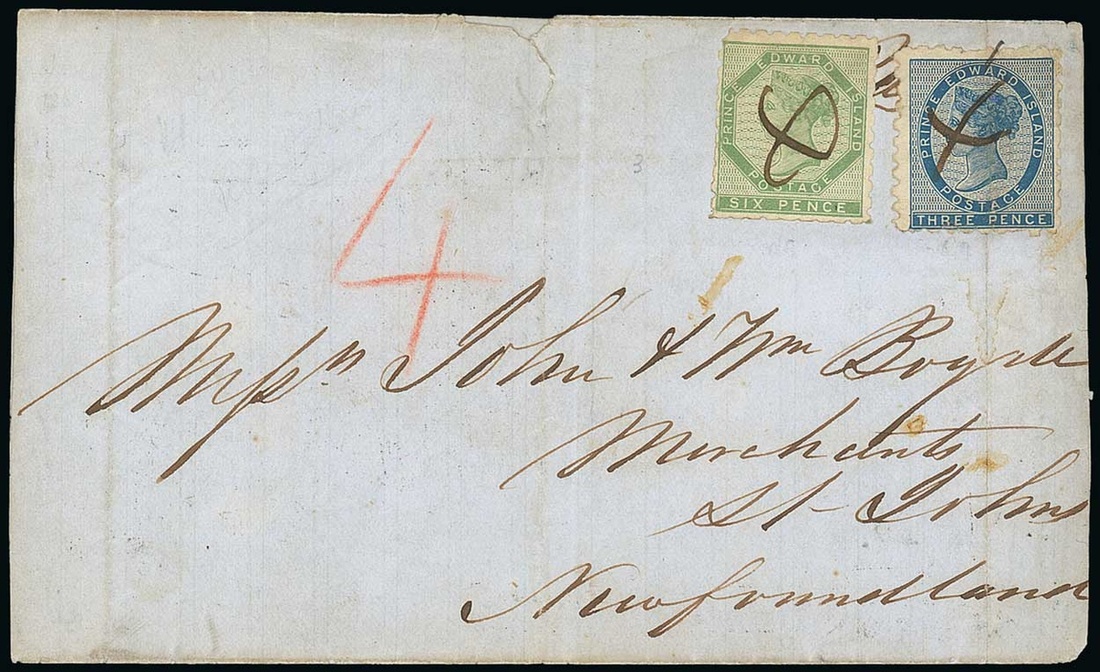 PRINCE EDWARD ISLAND
POSTAGE
SIX PENCE
8
PRINCE EDWARD ISLAND
POSTAGE
THREE PENCE
4
3
4
Messrs John & Wm Boyd
Merchants
St Johns
Newfoundland